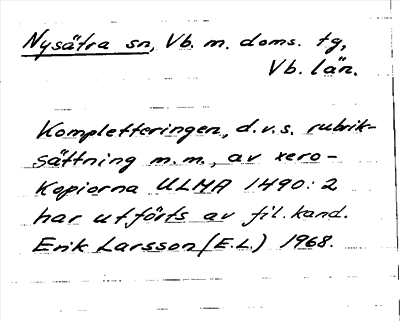 Nysätra sn, Vb. m. doms. tg,
Vb. län.
Kompletteringen, d.v.s. rubrik-
sättning m.m., av xero-
kopiorna ULMA 1490:2
har utförts av fil. kand.
Erik Larsson (E.L.) 1968.